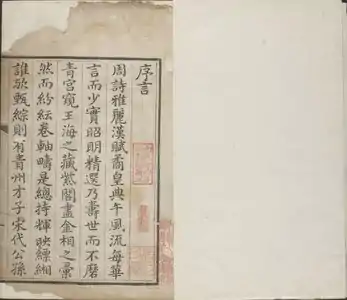 序言
周詩雅麗漢賦矞皇與午風流每華
言而少實昭明精選乃壽世而不磨
青宮窺玉海之藏紫閣盡金相之彙
然而紛紜卷軸疇是總持輝映縹緗
誰歟甄綜則有青州才子宋代公孫